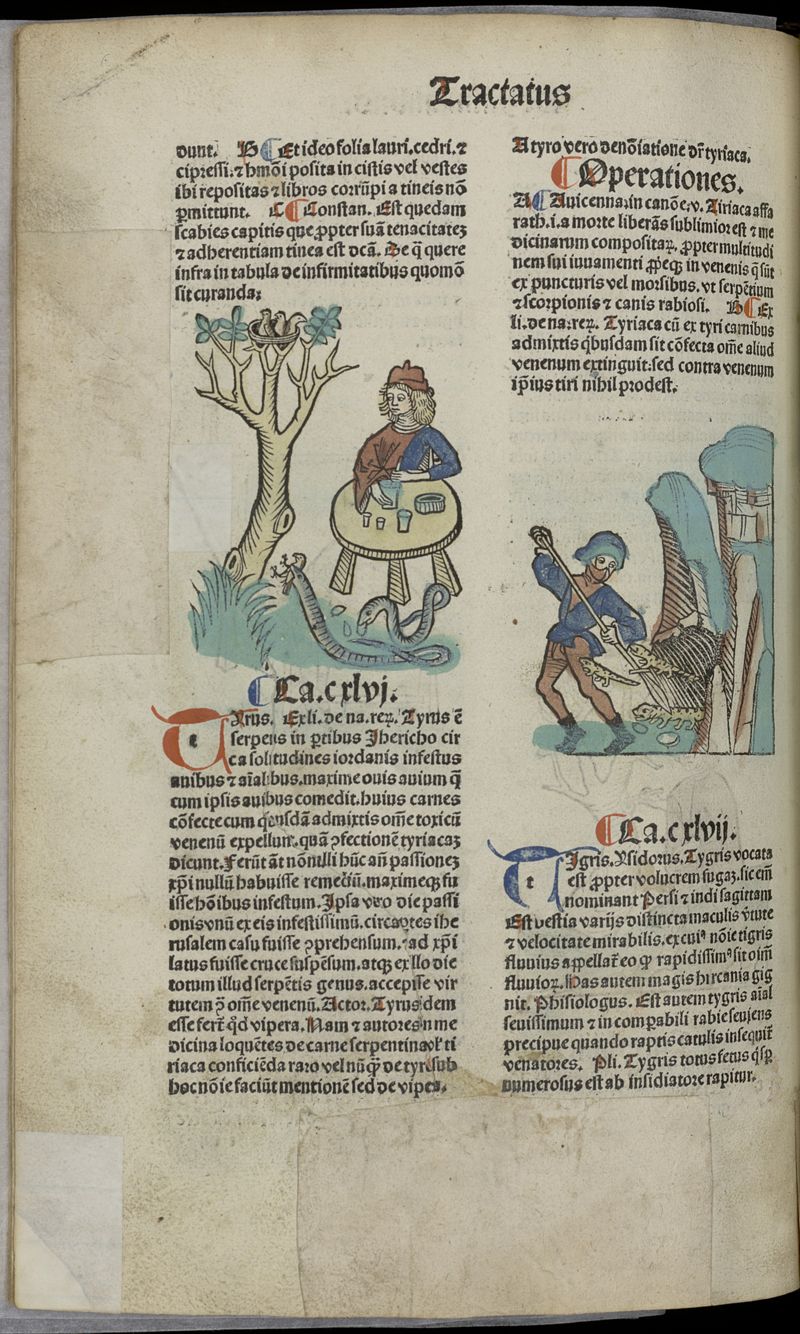 Tractatus
dunt. B Et ideo folia lauri.cedri.⁊
cipressi:⁊ hmõi posita in cistis vel vestes
ibi repositas ⁊ libros corrũpi a tineis nõ
ꝑmittunt. C Constan. Est quedam
scabies capitis que ꝓpter suã tenacitateꝫ
⁊ adherentiam tinea est dcã. De q̃ quere
infra in tabula de infirmitatibus quomõ
sit curanda:
Ca.cxlvj.
TYrus. Ex li. de na. reꝝ. Tyrus ē
serpens in ꝑtibus Jhericho cir
ca solitudines iordanis infestus
auibus ⁊ aĩalibus.maxime ouis auium q̃
cum ipsis auibus comedit.huius carnes
cõfecte cum quibusdã admixtis om̃e toxicũ
venenũ expellunt.quã ↄfectionẽ tyriacaꝫ
dicunt. Ferũt ãt nõnulli hũc añ passioneꝫ
xp̃i nullũ habuisse remediũ.maximeqꝫ fu
isse hõibus infestum. Ipsa vero die passi
onis vnũ ex eis infestissimũ.circa ihe
rusalem casu fuisse ↄprehensum.⁊ ad xp̃i
latus fuisse cruce suspẽsum.atqꝫ ex illo die
totum illud serpẽtis genus.accepisse vir
tutem ↄ̃ om̃e venenũ. Actor. Tyrus idem
esse fert̃ qd̃ vipera. Nam ⁊ autores in me
dicina loquẽtes de carne serpentina ti
riaca conficiẽda raro vel nũq̃ꝫ de tyri sub
hoc nõie faciũt mentionẽ sed de vipera.
A tyro vero denõiatione dr̃ tyriaca.
Operationes.
A Auicenna:in canõe.v. Tiriaca affa
rath.i.a morte liberãs sublimior est ⁊ me
dicinarum compositaꝝ. ꝓpter multitudi
nem sui iuuamenti ꝓpeqꝫ in venenis q̃ sũt
ex puncturis vel morsibus.vt serpẽtium
⁊ scorpionis ⁊ canis rabiosi. B Ex
li.de na:reꝝ. Tyriaca cũ ex tyri carnibus
admixtis q̃busdam sit cõfecta om̃e aliud
venenum extinguit:sed contra venenum
ip̃ius tiri nihil prodest.
Ca.cxlvij.
TIgris. Ysidorus. Tygris vocata
est ꝓpter volucrem fugaꝫ.sic em̃
nominant Persi ⁊ indi sagittam
Est bestia varijs distincta maculis v̓tute
⁊ velocitate mirabilis.ex cuiꝰ nõie tigris
fluuius appellat̃ eo ꝙ rapidissimꝰ sit oĩm
fluuioꝝ. Has autem magis hircania gig
nit. Phisiologus. Est autem tygris aĩal
seuissimum ⁊ incomꝑabili rabie seuiens
precipue quando raptis catulis insequit̃
venatores. Pli. Tygris totus fetus q̃ sꝑ
numerosus est ab insidiatore rapitur.